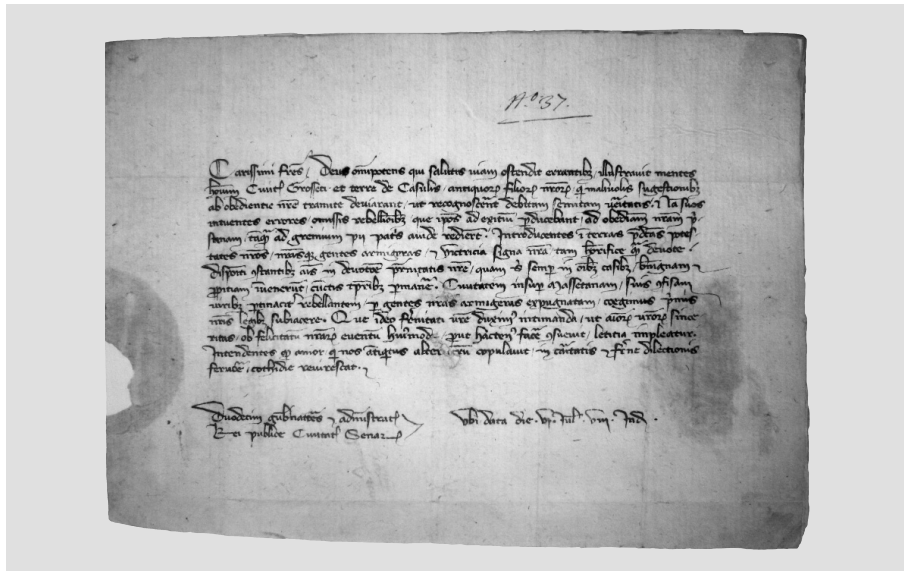 Aº 37.
Carissimi frēs. Deus omīpotens qui salutis viam ostendit errantibȝ, illustravit mentes
hōīum Civitˢ Grosseti et terre de Casulis, antiquoꝝ filioꝝ nr̄oꝝ, q̄ malivolis sugestionibȝ
ab obedientie nr̄e tramite deviarant, ut recognoscer̄ent debitam semitam v̄itatis. Na suos
intuentes errores, omissis rebellioībȝ que ip̄os ad exitiū p̄ducebant, ad obediam nr̄am p̄-
stariam, tāq̄ ad gremium pii pat̄s avide rediēre. Introducentes ī terras p̄dc̄as potes-
tates nr̄os, nr̄asqȝ gentes armigeras, et victricia signa nr̄a tam hōrifice q̄ devote.
Dispoīti ad devotōe nr̄e, quam semp̄ in oībȝ casibȝ, benignam et
p̄pitiam invenerūt, cunctis tp̄ribȝ p̄manēr. Civitatem insup Massetanam, suis ɔfisam
viribȝ p̄tinacit̄ rebellantem, p gentes nr̄as armigeras expugnatam, coegimus
subiacere. Que ideo fr̄nitati vr̄e duxim̄ intimanda, ut aīoꝝ vr̄oꝝ since
ritas, ob felicitatū nr̄aꝝ eventū hui᷒mōde, put hacten᷒ facē ɔsuevit, letitia impleatur.
Intendentes q̄ amor q̄ nos antiq̄tus alterutrū copulavit, in cāritatis et fr̄ne dilectionis
ferv̄oe, cothidie revirescat.
Duodecim gub̄natōes et administratˢ
Rei publice Civitatˢ Senaꝝ
Ubi data die vj Iul̄ viii Ind̄.